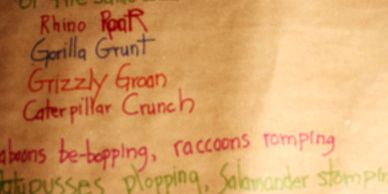 Rhino RoaR
Gorilla Grunt
Grizzly Groan
Caterpillar Crunch
be-bopping, raccoons romping
plopping, Salamander